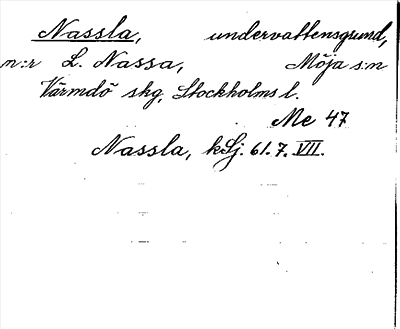 Nassla, undervattensgrund,
n:r L. Nassa, Möja s:n
Värmdö skg, Stockholms l.
Me 47
Nassla, kSj. 61. 7. VII.